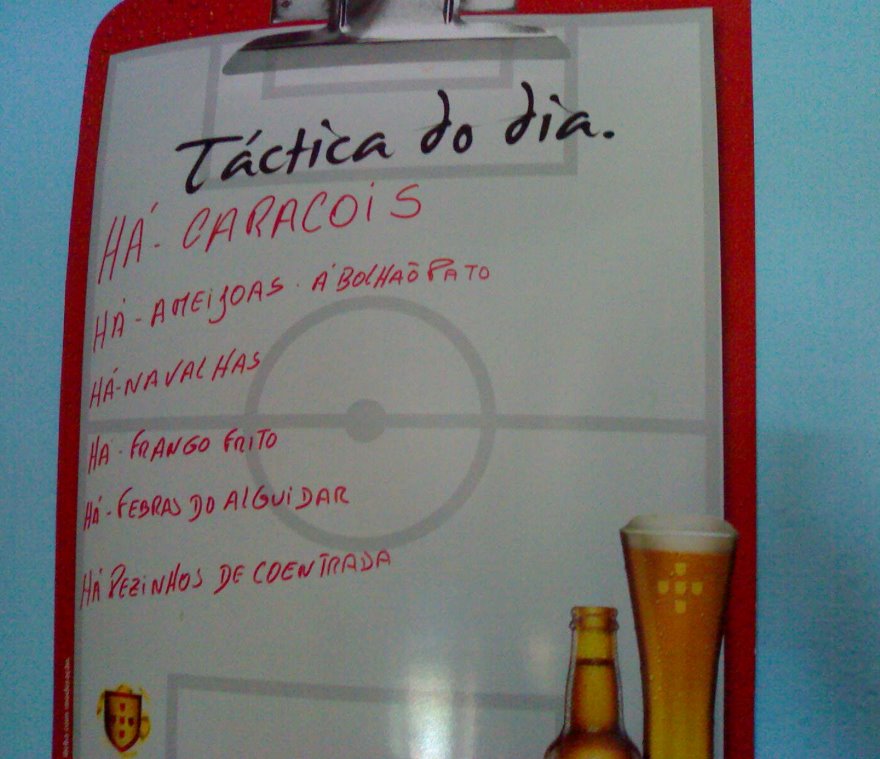 Táctica do dia.
HÁ - CARACOIS
HÁ - AMEIJOAS . Á BOLHAÕ PATO
HÁ - NAVALHAS
HÁ - FRANGO FRITO
HÁ - FEBRAS DO ALGUIDAR
HÁ PEZINHOS DE COENTRADA